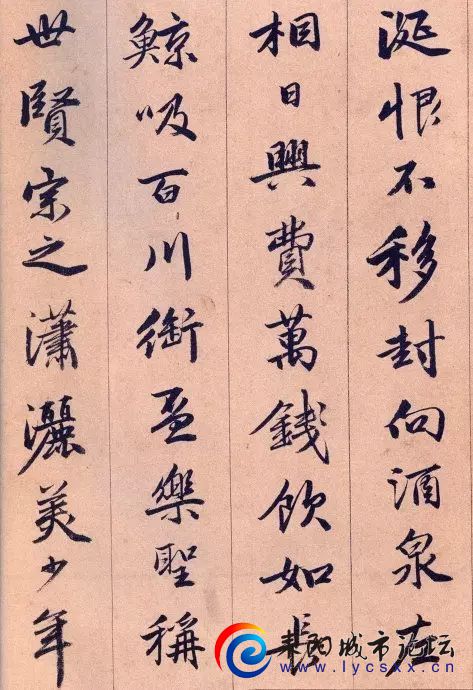 涎恨不移封向酒泉左
相日興費萬錢飲如長
鯨吸百川銜盃樂聖稱
世賢宗之瀟灑美少年
耒阳城市论坛
www.lycsxx.cn